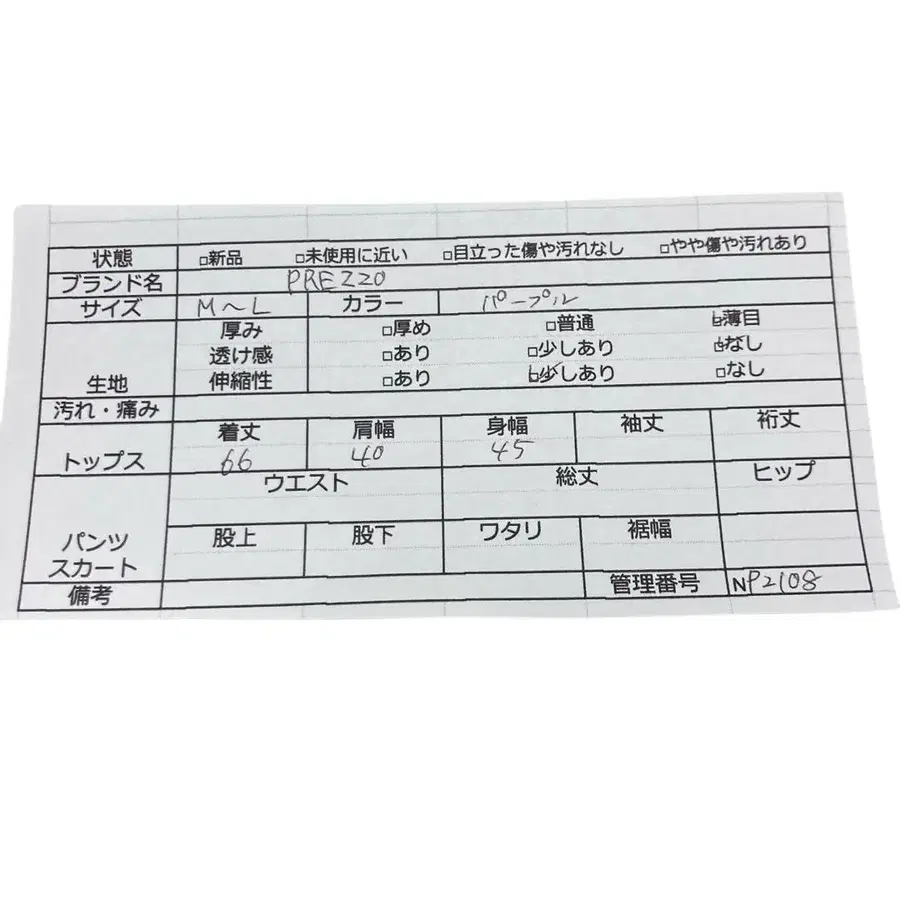 状態 □新品 □未使用に近い □目立った傷や汚れなし □やや傷や汚れあり
ブランド名 PREZZO
サイズ M～L カラー パープル
生地 厚み □厚め □普通 ☑薄目
透け感 □あり □少しあり ☑なし
伸縮性 □あり ☑少しあり □なし
汚れ・痛み
トップス 着丈 肩幅 身幅 袖丈 裄丈
66 40 45
パンツ スカート ウエスト 総丈 ヒップ
股上 股下 ワタリ 裾幅
備考 管理番号 NP2108